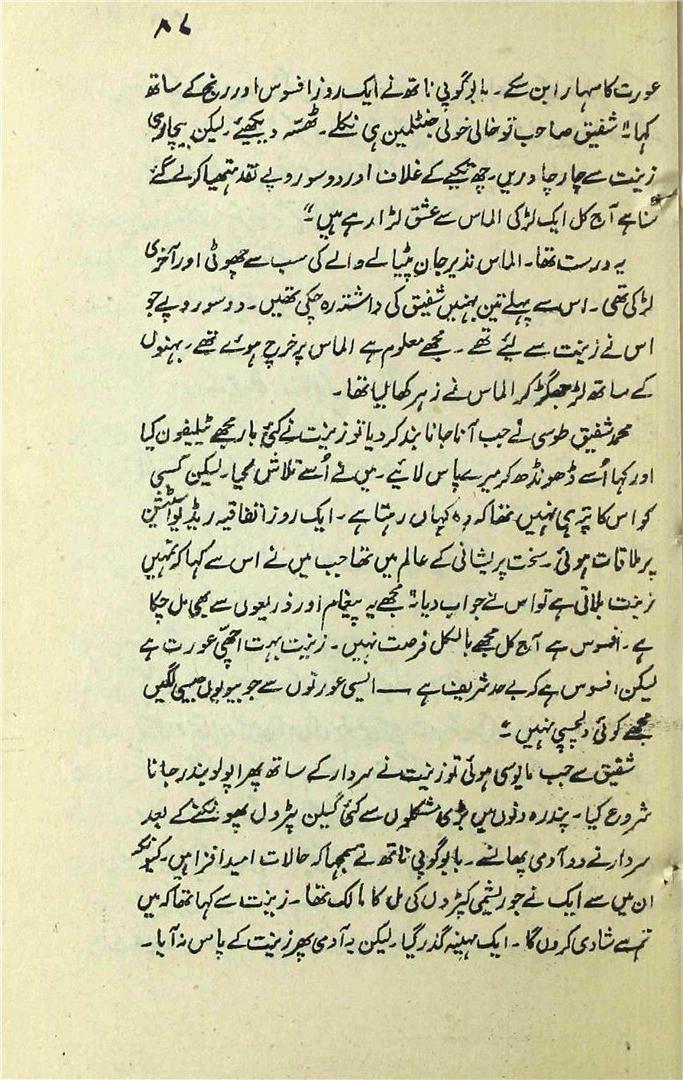 ۸۷
عورت کا سہارا بن سکے۔ بابو گوپی ناتھ نے ایک روز افسوس اور رنج کے ساتھ
کہا "شفیق صاحب تو خالی خولی جنٹلمین ہی نکلے۔ ٹھسّہ دیکھیے، لیکن بیچاری
زینت سے چار چادریں۔ چھ تکیے کے غلاف اور دو سو روپے نقد ہتھیا کر لے گئے
سُنا ہے آج کل ایک لڑکی الماس سے عشق لڑا رہے ہیں"۔
یہ درست تھا۔ الماس نذیر جان پٹیالے والے کی سب سے چھوٹی اور آخری
لڑکی تھی۔ اس سے پہلے تین بہنیں شفیق کی داشتہ رہ چکی تھیں۔ دو سو روپے جو
اس نے زینت سے لئے تھے۔ مجھے معلوم ہے الماس پر خرچ ہوئے تھے۔ بہنوں
کے ساتھ لڑ جھگڑ کر الماس نے زہر کھا لیا تھا۔
محمد شفیق طوسی نے جب آنا جانا بند کر دیا تو زینت نے کئی بار مجھے ٹیلیفون کیا
اور کہا اُسے ڈھونڈھ کر میرے پاس لائیے۔ میں نے اُسے تلاش کیا۔ لیکن کسی
کو اس کا پتہ ہی نہیں تھا کہ وہ کہاں رہتا ہے۔ ایک روز اتفاقیہ ریڈیو اسٹیشن
پر ملاقات ہوئی۔ سخت پریشانی کے عالم میں تھا جب میں نے اس سے کہا کہ تمہیں
زینت بلاتی ہے تو اس نے جواب دیا "مجھے یہ پیغام اور ذریعوں سے بھی مل چکا
ہے۔ افسوس ہے آج کل مجھے بالکل فرصت نہیں۔ زینت بہت اچھی عورت ہے
لیکن افسوس ہے کہ بے حد شریف ہے — ایسی عورتوں سے جو بیویوں جیسی لگیں
مجھے کوئی دلچسپی نہیں"۔
شفیق سے جب مایوسی ہوئی تو زینت نے سردار کے ساتھ پھر اپولو بندر جانا
شروع کیا۔ پندرہ دنوں میں بڑی مشکلوں سے کئی گیلن پٹرول پھونکنے کے بعد
سردار نے دو آدمی پھانسے۔ بابو گوپی ناتھ نے سمجھا کہ حالات امید افزا ہیں۔ کیونکہ
ان میں سے ایک نے جو ریشمی کپڑوں کی مل کا مالک تھا۔ زینت سے کہا تھا کہ میں
تم سے شادی کروں گا۔ ایک مہینہ گذر گیا۔ لیکن یہ آدمی پھر زینت کے پاس نہ آیا۔